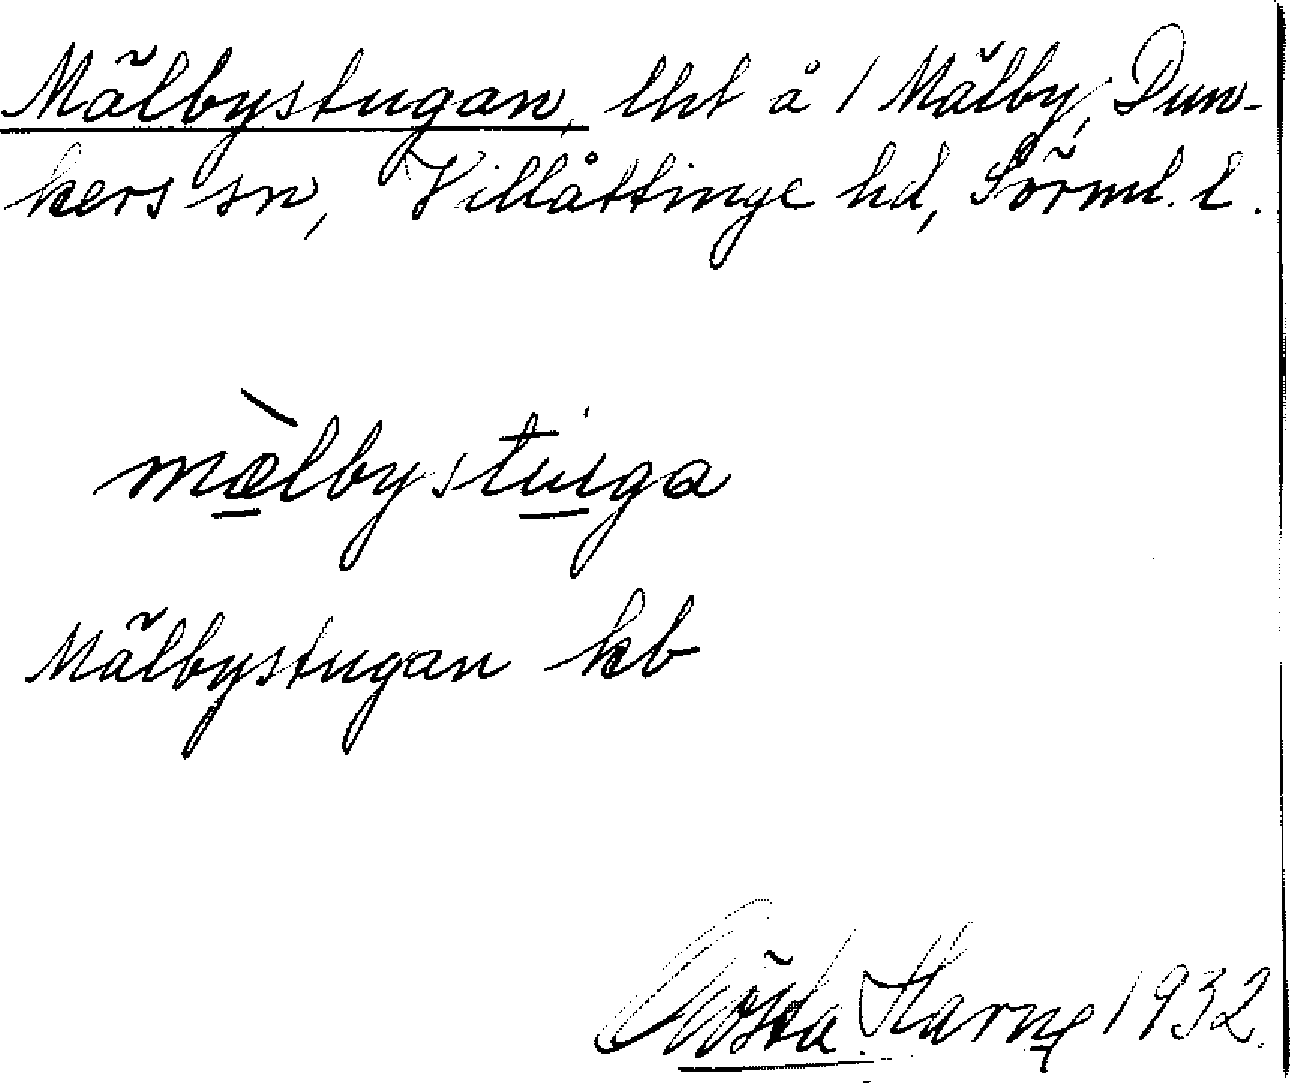 Mälbystugan, lht å 1 Mälby, Dun-
kers sn, Villåttinge hd, Sörml. l.
mæ̀lbystuga
Mälbystugan kb
Gösta Harne 1932.